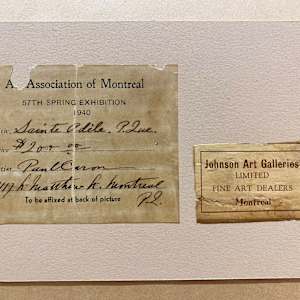 A Association of Montreal
57TH SPRING EXHIBITION
1940
Sainte Adèle. P. Que.
$200.00
Paul Caron
St. Matthew St. Montreal
To be affixed at back of picture
P.Q.
Johnson Art Galleries
LIMITED
FINE ART DEALERS
Montreal